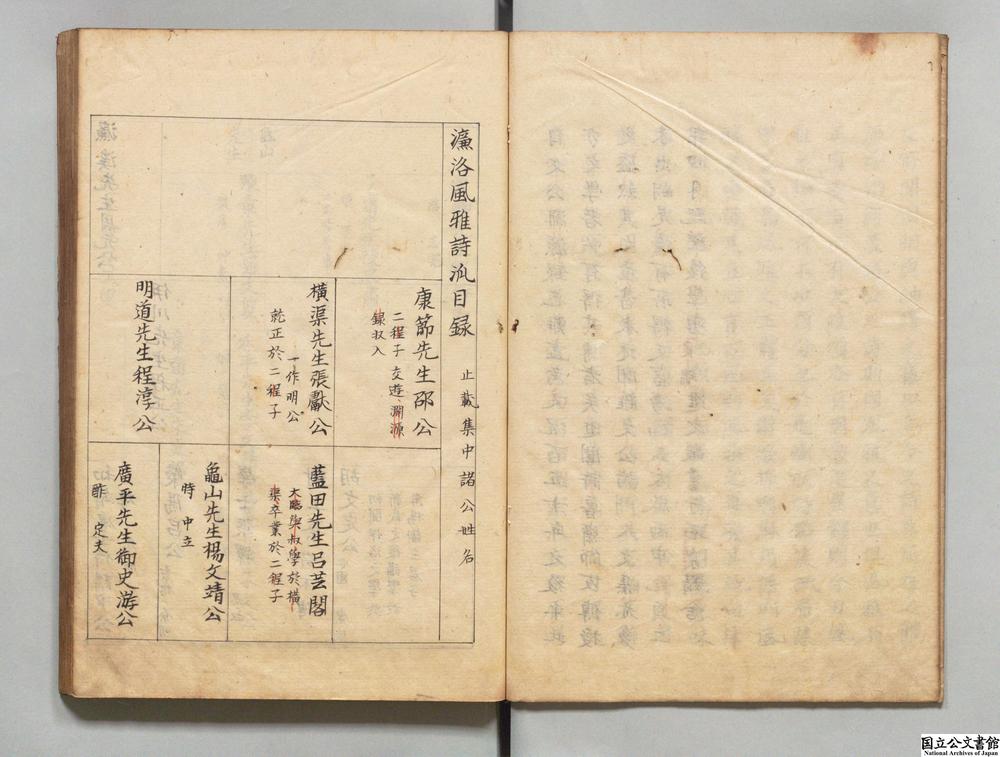 濂洛風雅詩派目録
止載集中諸公姓名
康節先生邵公
二程子交遊淵源
録収入
橫渠先生張獻公
一作明公
就正於二程子
明道先生程淳公
藍田先生呂芸閣
大臨與叔學於橫
渠卒業於二程子
龜山先生楊文靖公
時中立
廣平先生御史游公
酢定夫
国立公文書館
National Archives of Japan